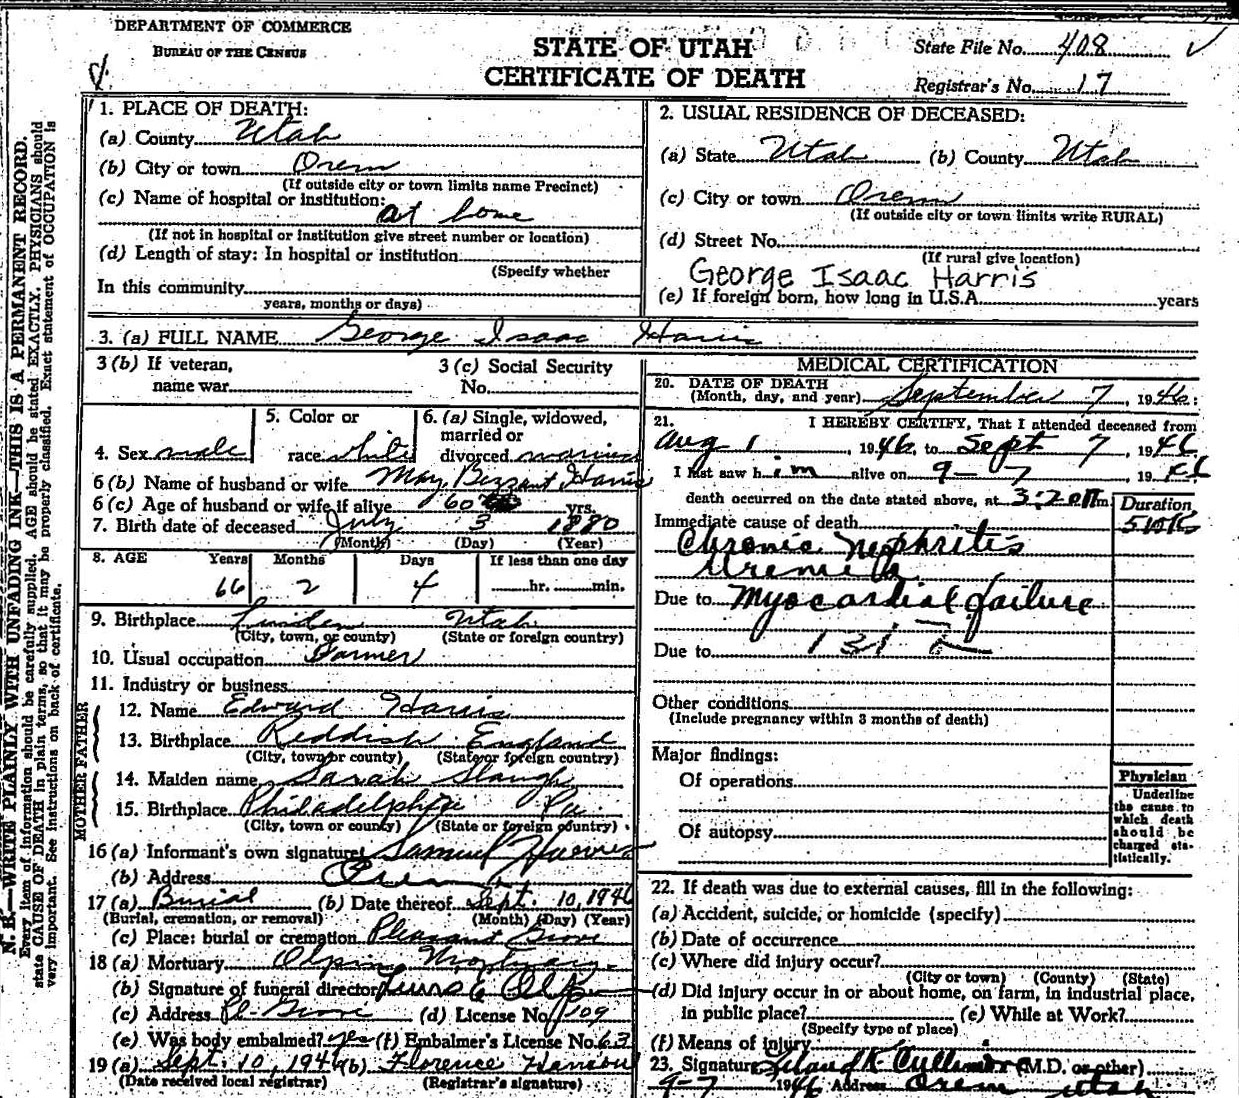 DEPARTMENT OF COMMERCE
BUREAU OF THE CENSUS
STATE OF UTAH
CERTIFICATE OF DEATH
State File No. 408
Registrar's No. 17
N. B.—WRITE PLAINLY WITH UNFADING INK—THIS IS A PERMANENT RECORD.
Every item of information should be carefully supplied. AGE should be stated EXACTLY. PHYSICIANS should
state CAUSE OF DEATH in plain terms, so that it may be properly classified. Exact statement of OCCUPATION is
very important. See instructions on back of certificate.
1. PLACE OF DEATH:
(a) County Utah
(b) City or town Orem
(If outside city or town limits name Precinct)
(c) Name of hospital or institution:
at home
(If not in hospital or institution give street number or location)
(d) Length of stay: In hospital or institution
(Specify whether
In this community
years, months or days)
2. USUAL RESIDENCE OF DECEASED:
(a) State Utah (b) County Utah
(c) City or town Orem
(If outside city or town limits write RURAL)
(d) Street No.
(If rural give location)
George Isaac Harris
(e) If foreign born, how long in U.S.A. years
3. (a) FULL NAME George Isaac Harris
3 (b) If veteran,
name war
3 (c) Social Security
No.
4. Sex male
5. Color or
race white
6. (a) Single, widowed,
married or
divorced married
6 (b) Name of husband or wife May Bezzant Harris
6 (c) Age of husband or wife if alive 60 yrs.
7. Birth date of deceased July 3 1880
(Month) (Day) (Year)
8. AGE Years Months Days If less than one day
66 2 4 hr. min.
9. Birthplace Linden Utah
(City, town, or county) (State or foreign country)
10. Usual occupation Farmer
11. Industry or business
FATHER
12. Name Edward Harris
13. Birthplace Reddish England
(City, town or county) (State or foreign country)
MOTHER
14. Maiden name Sarah Slaugh
15. Birthplace Philadelphia Pa.
(City, town or county) (State or foreign country)
16 (a) Informant's own signature Samuel Harris
(b) Address Orem
17 (a) Burial (b) Date thereof Sept. 10, 1946
(Burial, cremation, or removal) (Month) (Day) (Year)
(c) Place: burial or cremation Pleasant Grove
18 (a) Mortuary Olpin Mortuary
(b) Signature of funeral director Olpin
(c) Address Pl. Grove (d) License No. 109
(e) Was body embalmed? yes (f) Embalmer's License No. 63
19 (a) Sept. 10, 1946 (b) Florence Hanson
(Date received local registrar) (Registrar's signature)
MEDICAL CERTIFICATION
20. DATE OF DEATH
(Month, day, and year) September 7, 1946
21. I HEREBY CERTIFY, That I attended deceased from
Aug 1, 1946, to Sept 7, 1946
I last saw him alive on 9-7 1946
death occurred on the date stated above, at 3:20 m.
Duration
Immediate cause of death
Chronic nephritis
Uremia
Due to Myocardial failure
Due to 131
Other conditions
(Include pregnancy within 3 months of death)
Major findings:
Of operations
Of autopsy
Physician
Underline
the cause to
which death
should be
charged sta-
tistically.
22. If death was due to external causes, fill in the following:
(a) Accident, suicide, or homicide (specify)
(b) Date of occurrence
(c) Where did injury occur?
(City or town) (County) (State)
(d) Did injury occur in or about home, on farm, in industrial place,
in public place? (e) While at Work?
(Specify type of place)
(f) Means of injury
23. Signature Leland K Cullimore (M.D. or other)
9-7 1946 Address Orem Utah